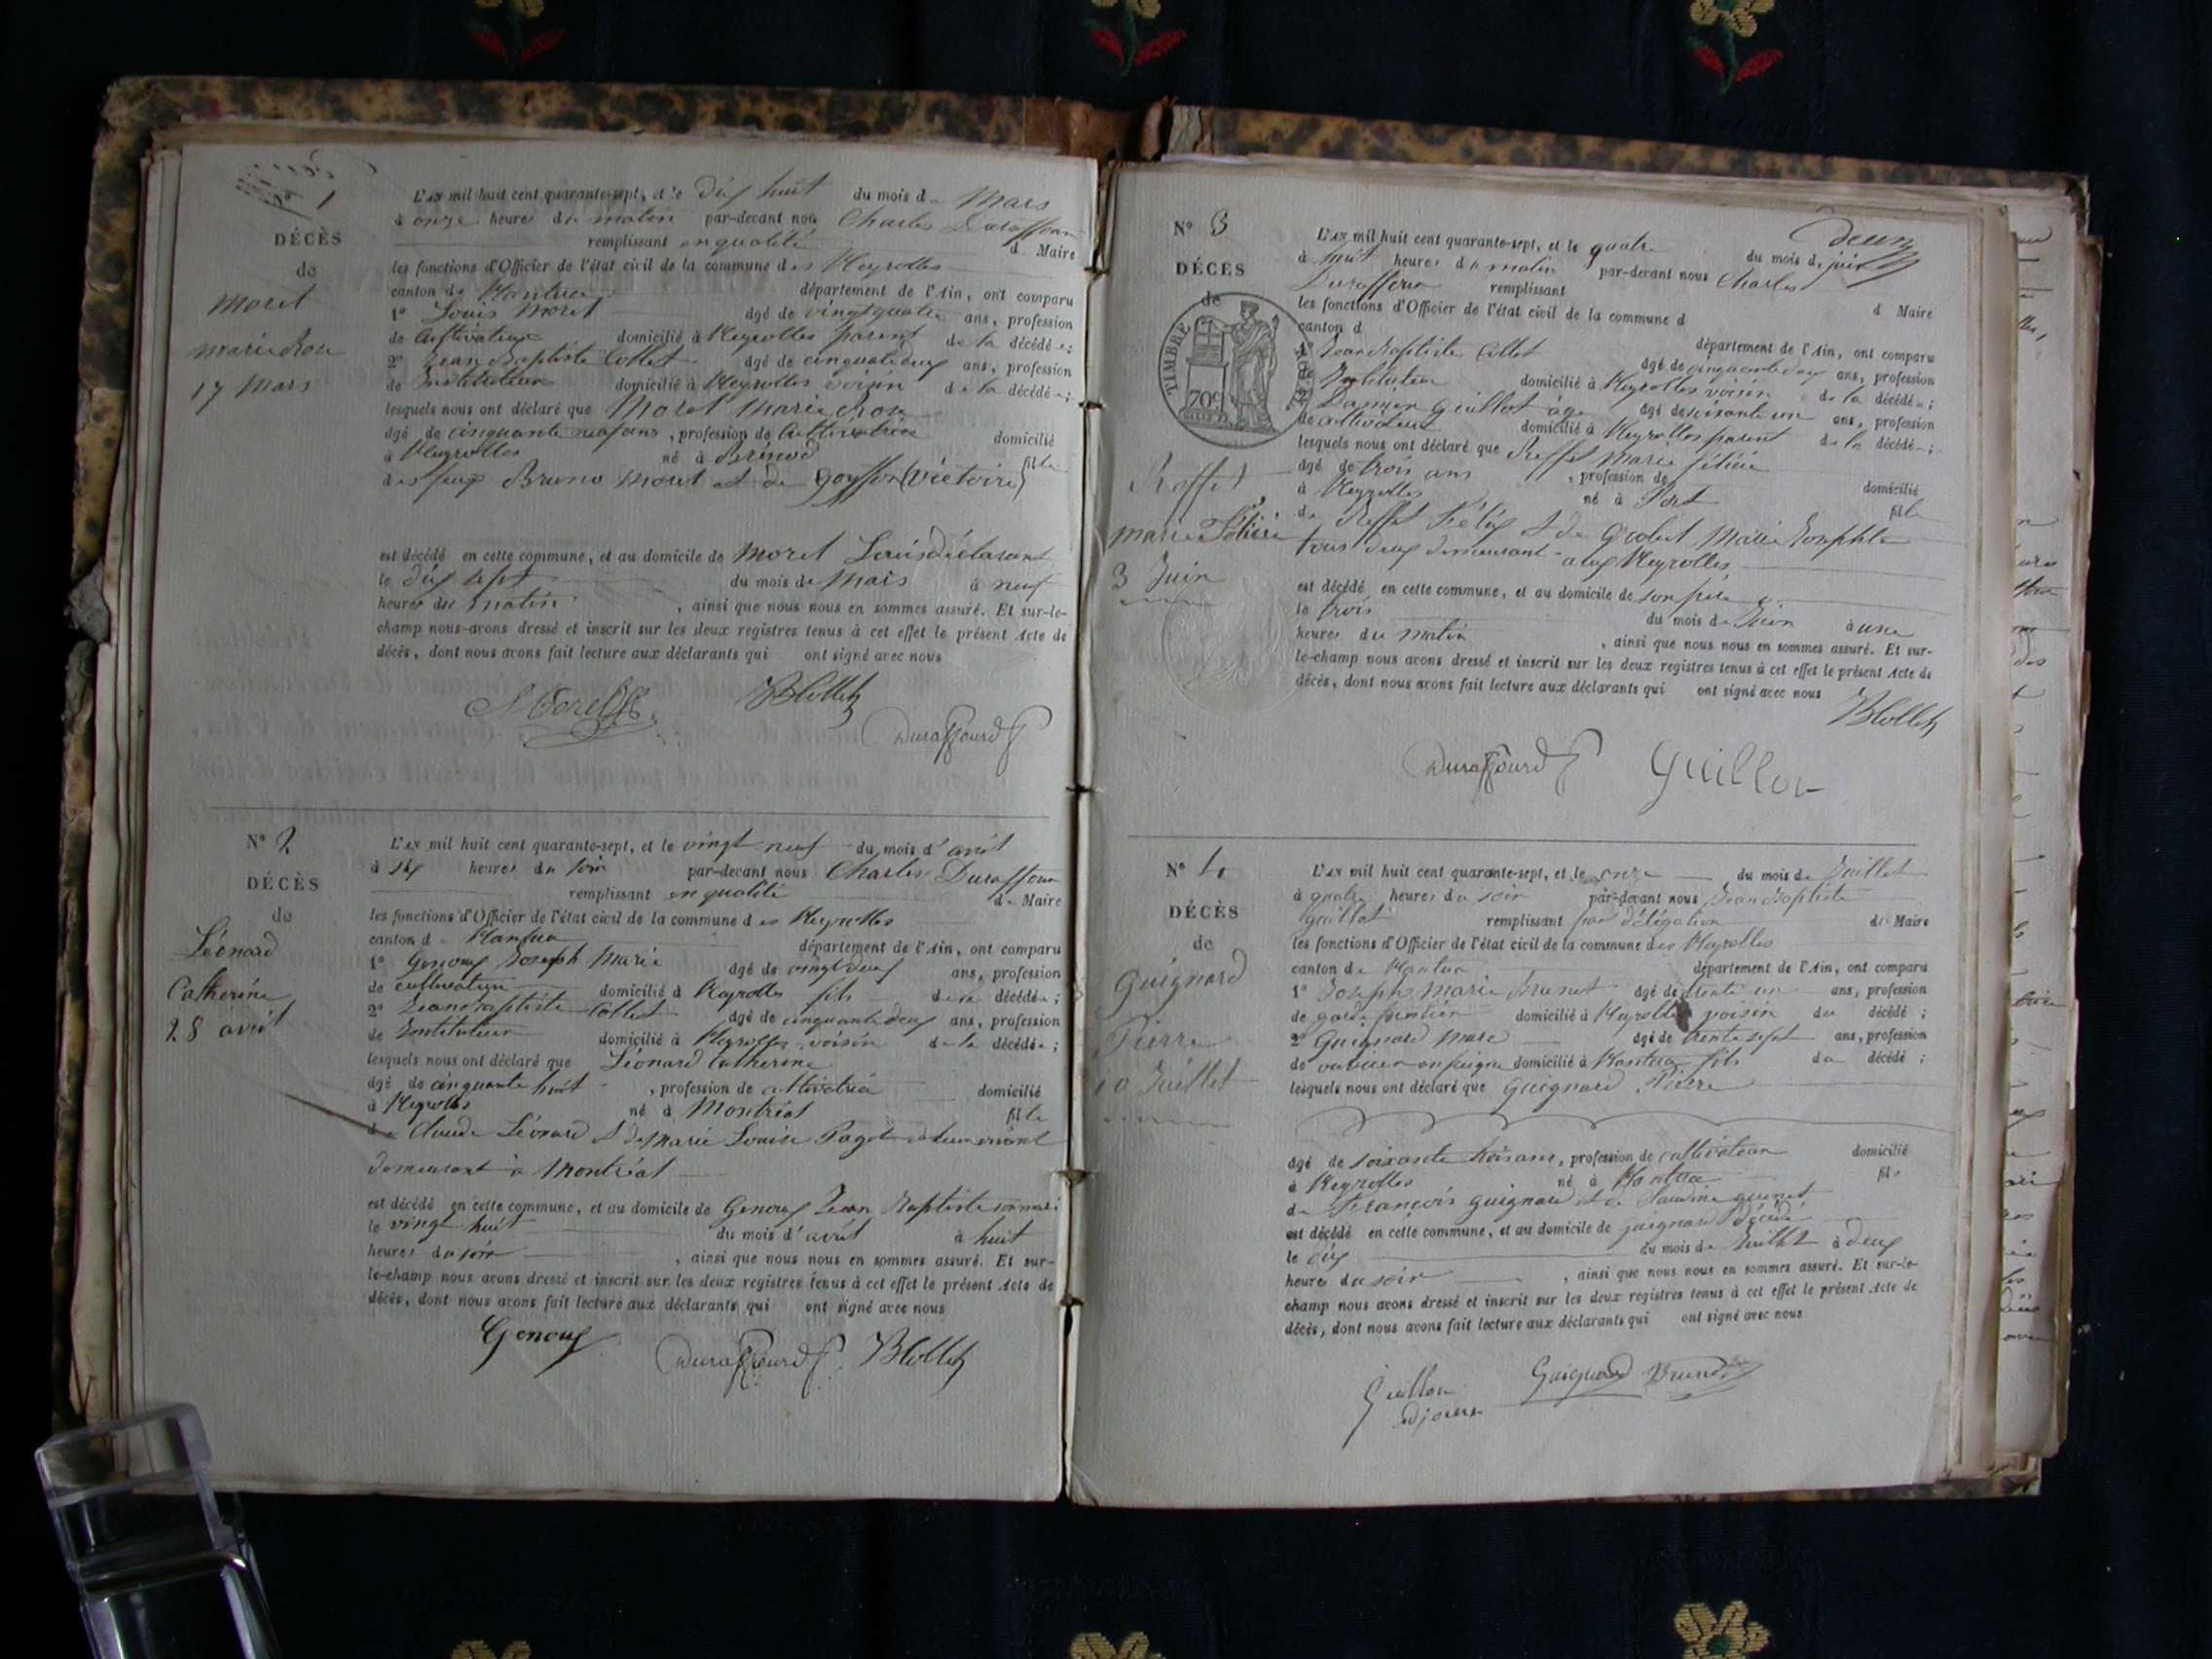 1
DÉCÈS
de
Moret
Marie Rose
17 Mars
L'AN mil huit cent quarante-sept, et le dix huit du mois de Mars
à onze heures du matin par-devant nous Charles Duraffour
remplissant en qualité de Maire
les fonctions d'Officier de l'état civil de la commune des Neyrolles
canton de Nantua département de l'Ain, ont comparu
1° Louis Moret âgé de vingt quatre ans, profession
de Cultivateur domicilié à Neyrolles parent de la décédée;
2° Jean Baptiste Collet âgé de cinquante deux ans, profession
de Instituteur domicilié à Neyrolles voisin de la décédée;
lesquels nous ont déclaré que Moret Marie Rose
âgé de cinquante neuf ans, profession de Cultivatrice domicilié
à Neyrolles né à Brénod fille
des feux Bruno Moret et de Goyffon (Victoire)
est décédé en cette commune, et au domicile de Moret Louis déclarant
le dix sept du mois de Mars à neuf
heures du matin, ainsi que nous nous en sommes assuré. Et sur-le-
champ nous avons dressé et inscrit sur les deux registres tenus à cet effet le présent Acte de
décès, dont nous avons fait lecture aux déclarants qui ont signé avec nous
Moret JBCollet
Duraffourd
N° 2
DÉCÈS
de
Léonard
Catherine
28 avril
L'AN mil huit cent quarante-sept, et le vingt neuf du mois d'avril
à six heures du soir par-devant nous Charles Duraffour
remplissant en qualité de Maire
les fonctions d'Officier de l'état civil de la commune des Neyrolles
canton de Nantua département de l'Ain, ont comparu
1° Genoux Joseph Marie âgé de vingt deux ans, profession
de cultivateur domicilié à Neyrolles fils de la décédée;
2° Jean Baptiste Collet âgé de cinquante deux ans, profession
de Instituteur domicilié à Neyrolles voisin de la décédée;
lesquels nous ont déclaré que Léonard Catherine
âgé de cinquante huit, profession de cultivatrice domicilié
à Neyrolles né à Montréal fille
de Claude Léonard et de Marie Louise Paget de leur vivant
demeurant à Montréal
est décédé en cette commune, et au domicile de Genoux Jean Baptiste son mari
le vingt huit du mois d'avril à huit
heures du soir, ainsi que nous nous en sommes assuré. Et sur-
le-champ nous avons dressé et inscrit sur les deux registres tenus à cet effet le présent Acte de
décès, dont nous avons fait lecture aux déclarants qui ont signé avec nous
Genoux Duraffourd JBCollet
deux
N° 3
DÉCÈS
de
TIMBRE ROYAL
70c
Roffet
Marie Félicie
3 Juin
L'AN mil huit cent quarante-sept, et le quatre du mois de juin
à huit heures du matin par-devant nous Charles
Duraffour remplissant d Maire
les fonctions d'Officier de l'état civil de la commune d
canton d département de l'Ain, ont comparu
Jean Baptiste Collet âgé de cinquante deux ans, profession
Instituteur domicilié à Neyrolles voisin de la décédée;
Damien Guillot âgé âgé de soixante un ans, profession
de cultivateur domicilié à Neyrolles parent de la décédée;
lesquels nous ont déclaré que Reffet Marie félicie
âgé de trois ans, profession de domicilié
à Neyrolles né à Port fille
de Reffet Félix et de Grobet Marie Josephte
tous deux demeurant aux Neyrolles
est décédé en cette commune, et au domicile de son père
le trois du mois de Juin à une
heures du matin, ainsi que nous nous en sommes assuré. Et sur-
le-champ nous avons dressé et inscrit sur les deux registres tenus à cet effet le présent Acte de
décès, dont nous avons fait lecture aux déclarants qui ont signé avec nous
JBCollet
Duraffourd Guillot
N° 4
DÉCÈS
de
Guignard
Pierre
10 Juillet
L'AN mil huit cent quarante-sept, et le onze du mois de Juillet
à quatre heures du soir par-devant nous Jean Baptiste
Guillot remplissant par délégation du Maire
les fonctions d'Officier de l'état civil de la commune des Neyrolles
canton de Nantua département de l'Ain, ont comparu
1° Joseph Marie Brunet âgé de trente un ans, profession
de garde forêtier domicilié à Neyrolles voisin du décédé;
2° Guignard Marc âgé de trente sept ans, profession
de ouvrier en peigne domicilié à Nantua fils du décédé;
lesquels nous ont déclaré que Guignard Pierre
âgé de soixante trois ans, profession de cultivateur domicilié
à Neyrolles né à Nantua fils
de François Guignard et de Claudine
est décédé en cette commune, et au domicile de guignard décédé
le dix du mois de Juillet à deux
heures du soir, ainsi que nous nous en sommes assuré. Et sur-le-
champ nous avons dressé et inscrit sur les deux registres tenus à cet effet le présent Acte de
décès, dont nous avons fait lecture aux déclarants qui ont signé avec nous
Guillot Guignard Brunet
adjoint